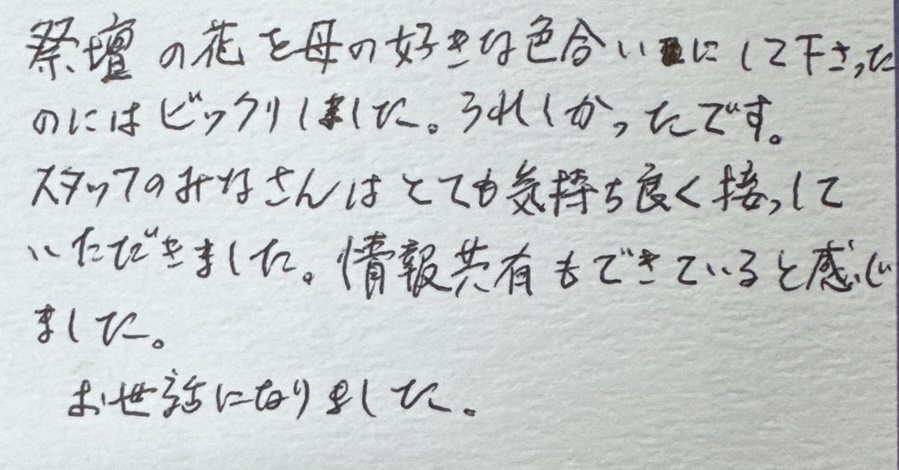 祭壇の花を母の好きな色合いにして下さった
のにはビックリしました。うれしかったです。
スタッフのみなさんはとても気持ち良く接して
いただきました。情報共有もできていると感じ
ました。
お世話になりました。